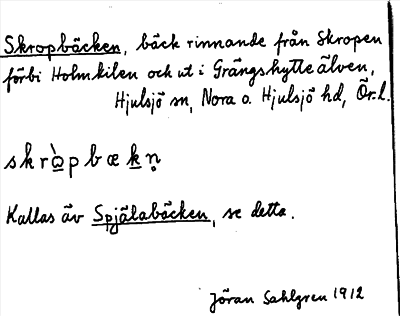 Skropbäcken, bäck rinnande från Skropen
förbi Holmkilen och ut i Grängshytteälven,
Hjulsjö sn, Nora o. Hjulsjö hd, Ör. l.
skrὼpbœkn̥
Kallas äv Spjälabäcken, se detta.
Jöran Sahlgren 1912